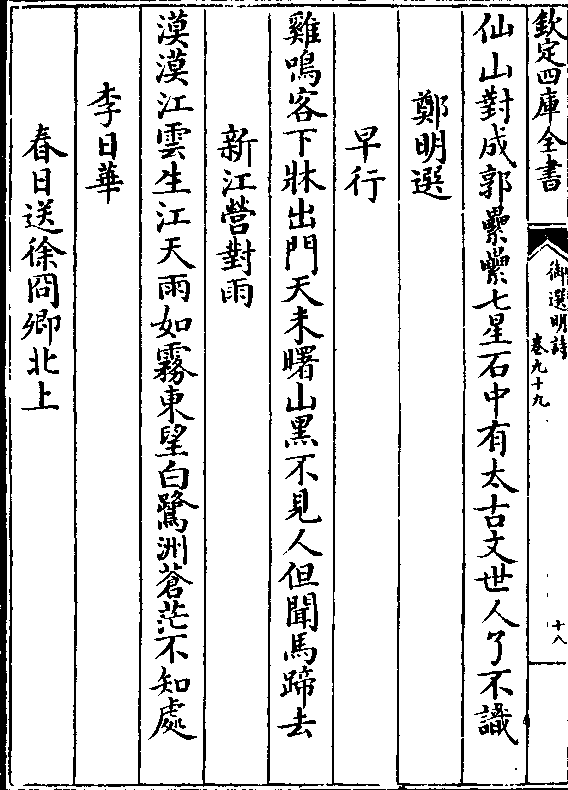 欽定四庫全書
御選明詩
卷九十九
十八
仙山對成郭纍纍七星石中有太古文世人了不識
鄭明選
早行
雞鳴客下牀出門天未曙山黑不見人但聞馬蹄去
新江營對雨
漠漠江雲生江天雨如霧東望白鷺洲蒼茫不知處
李日華
春日送徐冏卿北上